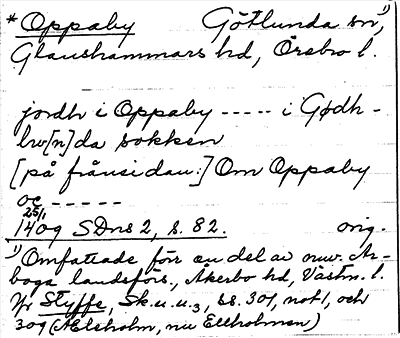 * Oppaby Götlunda sn, 1)
Glanshammars hd, Örebro l.
jordh i Oppaby ----- i Gødh-
lw[n]da sokken
[på frånsidan:] Om Oppaby
oc -----
25/1
1409 SDns 2, s. 82. orig.
1) Omfattade förr en del av nuv. Ar-
boga landsförs., Åkerbo hd, Västm. l.
Jfr Styffe, Sk.u.u.3, ss. 301, not 1, och
309 (Ælsholm, nu Ellholmen)